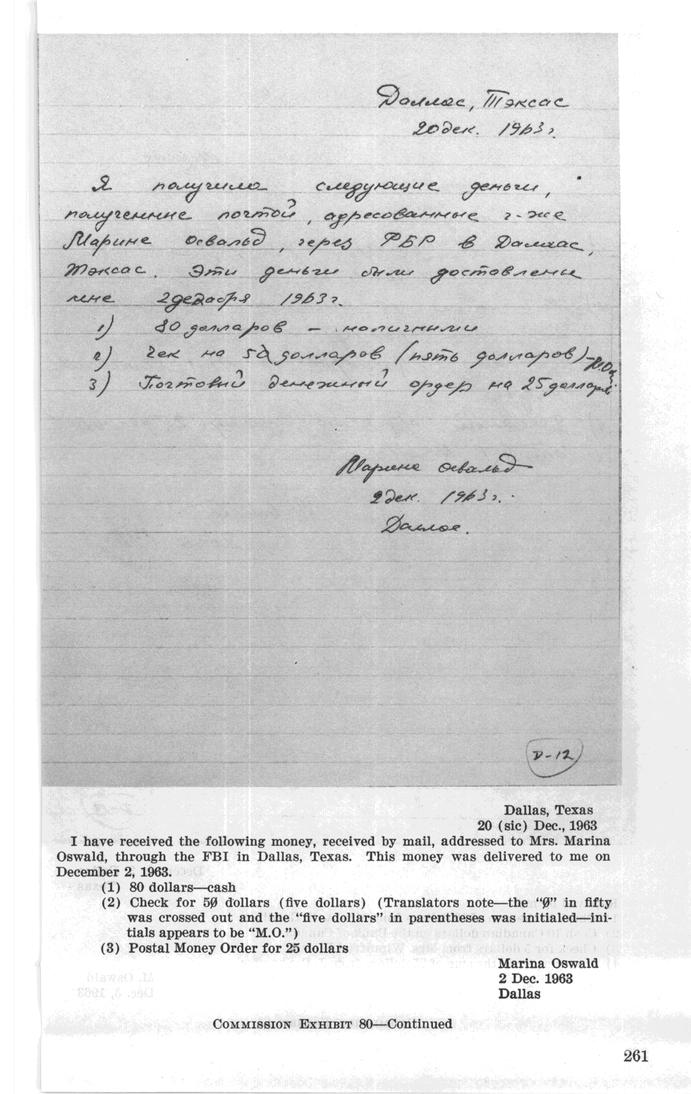 Даллас, Тэксас
20 дек. 1963 г.
Я получила следующие деньги,
полученные почтой, адресованные г-же
Марине Освальд, через ФБР в Даллас,
Тэксас. Эти деньги были доставлены
мне 2 декабря 1963 г.
1) 80 долларов – наличными
2) Чек на 50 долларов (пять долларов) – М.О.
3) Почтовый денежный ордер на 25 долларов
Марина Освальд
2 дек. 1963 г.
Даллас.
D-12
Dallas, Texas
20 (sic) Dec., 1963
I have received the following money, received by mail, addressed to Mrs. Marina
Oswald, through the FBI in Dallas, Texas. This money was delivered to me on
December 2, 1963.
(1) 80 dollars—cash
(2) Check for 50 dollars (five dollars) (Translators note—the “0” in fifty
was crossed out and the “five dollars” in parentheses was initialed—ini-
tials appears to be “M.O.”)
(3) Postal Money Order for 25 dollars
Marina Oswald
2 Dec. 1963
Dallas
COMMISSION EXHIBIT 80—Continued
261